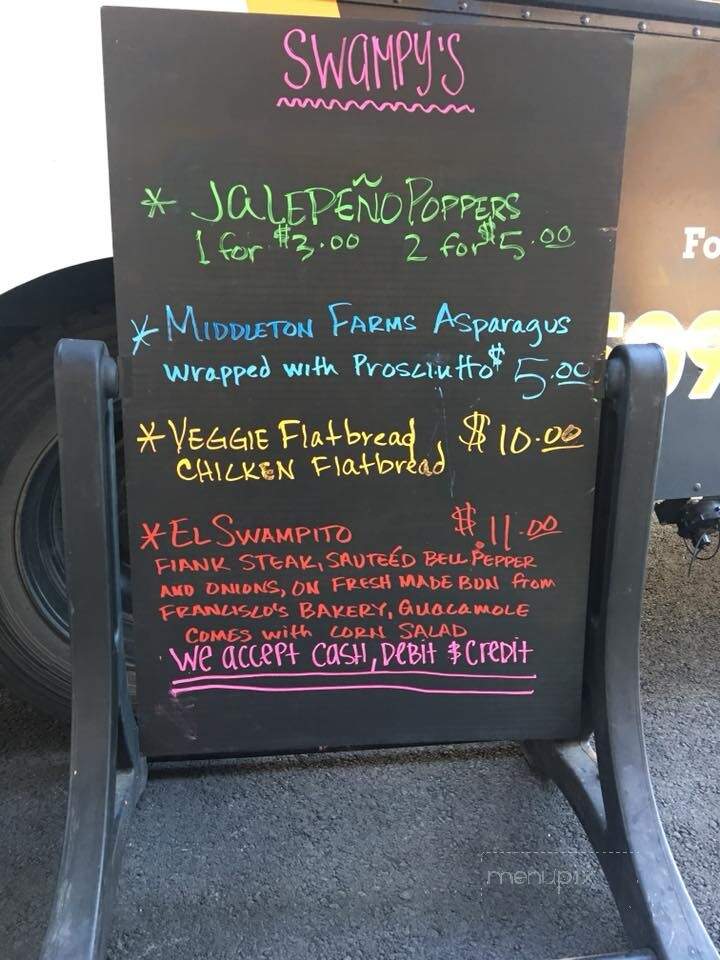 SWAMPY'S
* JALEPEÑO POPPERS
1 for $3.00 2 for $5.00
* MIDDLETON FARMS Asparagus
wrapped with Prosciutto $5.00
* VEGGIE Flatbread $10.00
CHICKEN Flatbread
* EL SWAMPITO $11.00
FlANK STEAK, SAUTEÉD BELL PEPPER
AND ONIONS, ON FRESH MADE BUN from
FRANCISCO'S BAKERY, GUACAMOLE
COMES with CORN SALAD
We accept CASH, DeBit $ Credit
Fo
menupix